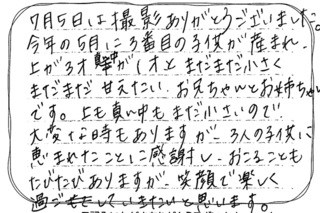 7月5日は撮影ありがとうございました。
今年の5月に3番目の子供が産まれ、
上が3才 真中が1才とまだまだ小さく
まだまだ甘えたい、お兄ちゃんとお姉ちゃん
です。上も真い中もまだ小さいので
大変な時もありますが、3人の子供に
恵まれたことに感謝し、おこることも
たびたびありますが、笑顔で楽しく
過ごしていきたいと思います。